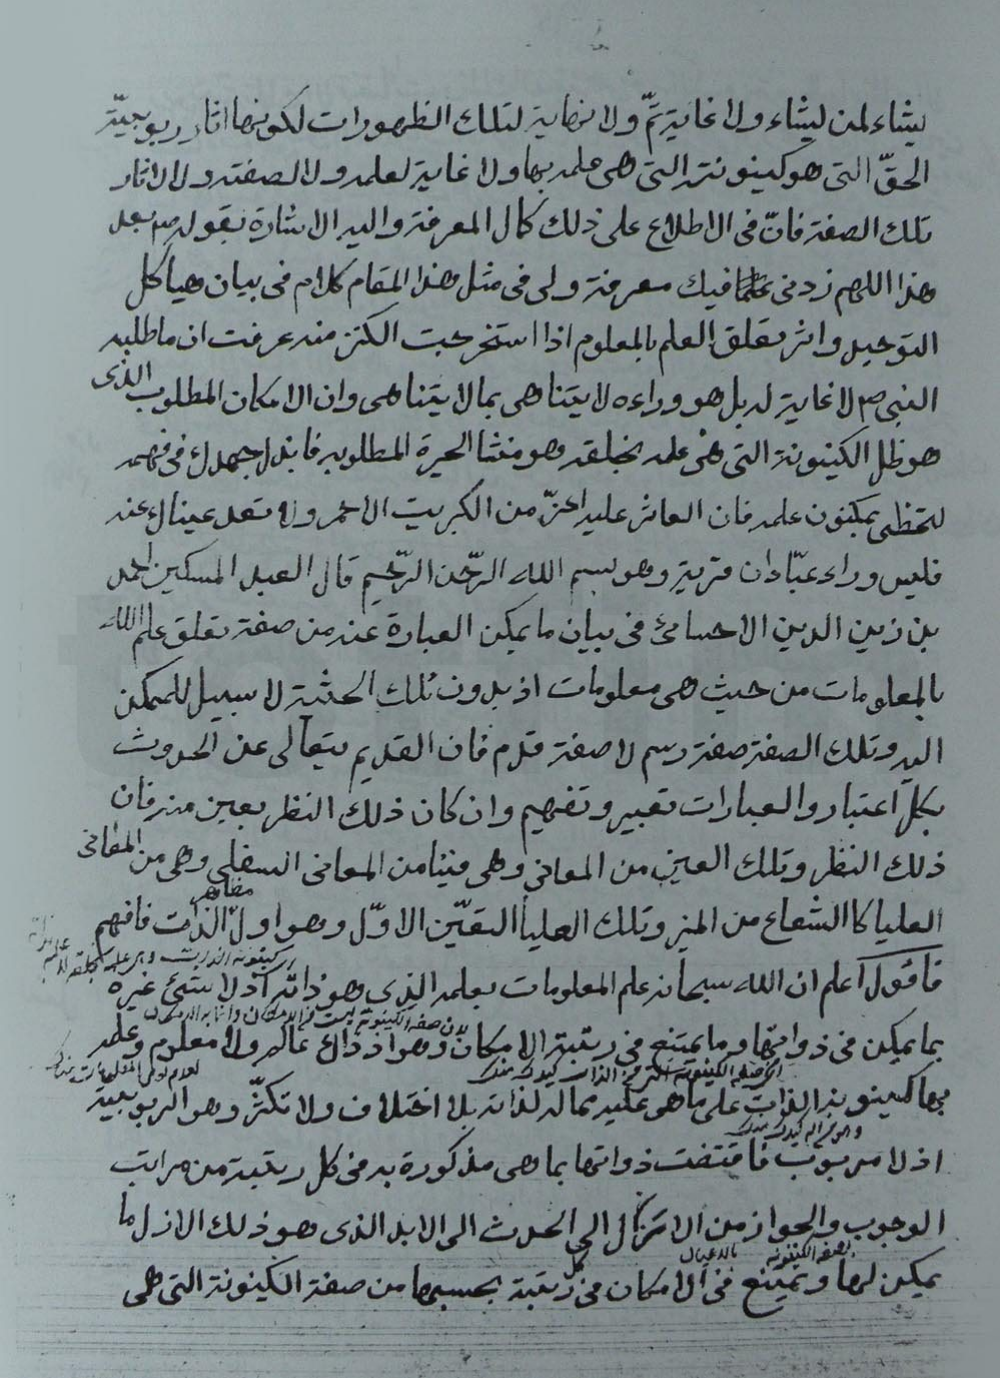 يشاء لمن يشاء ولا غاية ثمّ ولا نهاية لتلك الظهورات لكونها اثار ربوبيّة
الحقّ التى هو كينونته التى هى علمه بها ولا غاية لعلمه ولا لصفته ولا لاثار
تلك الصفة فانّ فى الاطلاع على ذلك كمال المعرفة واليه الاشارة بقوله ص بعد
هذا اللهم زدنى فيك معرفة ولى فى مثل هذا المقام كلام فى بيان هياكل
التوحيد واثر تعلق العلم بالمعلوم اذا استخرجت الكنز منه عرفت ان ما طلبه
النبى ص لا غاية له بل هو وراءه لا يتناهى بما لا يتناهى وان الامكان المطلوب الذى
هو ظل الكينونة التى هى علمه بخلقه وهو منشأ الحيرة المطلوبه فابذل جهدك فى فهمه
لتحظى بمكنون علمه فان العاثر عليه اعزّ من الكبريت الاحمر ولا تعد عيناك عنه
فليس وراء عبّادان قرية وهو بسم الله الرّحمن الرّحيم قال العبد المسكين احمد
بن زين الدين الاحسائى فى بيان ما يمكن العبارة عنه من صفة تعلق علم الله
بالمعلومات من حيث هى معلومات اذ بدون تلك الحيثية لا سبيل للممكن
اليه وتلك الصفة صفة رسم لا صفة قدم فان القديم يتعالى عن الحدوث
بكل اعتبار والعبارات تعبير وتفهيم وان كان ذلك النظر بعين منه فان
ذلك النظر وتلك العين من المعانى وهى فينا من المعانى السفلى وهى من المعانى
العليا كالشعاع من المنير وتلك العليا التعيّن الاوّل وهو اول الذات فافهم
مظاهر
فاقول اعلم ان الله سبحانه علم المعلومات بعلمه الذى هو ذاته اذ لا شىء غيره
بما يمكن فى ذواتها وما يمتنع فى رتبة الامكان وهو اذ ذاك عالم ولا معلوم وعلمه
بها كينونة الذات على ما هى عليه مما له لذاته بلا اختلاف ولا تكثّر وهو الربوبية
اذ لا مربوب فاقتضت ذواتها بما هى مذكورة به فى كل رتبة من مراتب
الوجوب والجواز من الازل الى الحدث الى الابد الذى هو ذلك الازل ما
بصفة الكينونة
يمكن لها ويمتنع فى الامكان فى كل رتبة بحسبها من صفة الكينونة التى هى